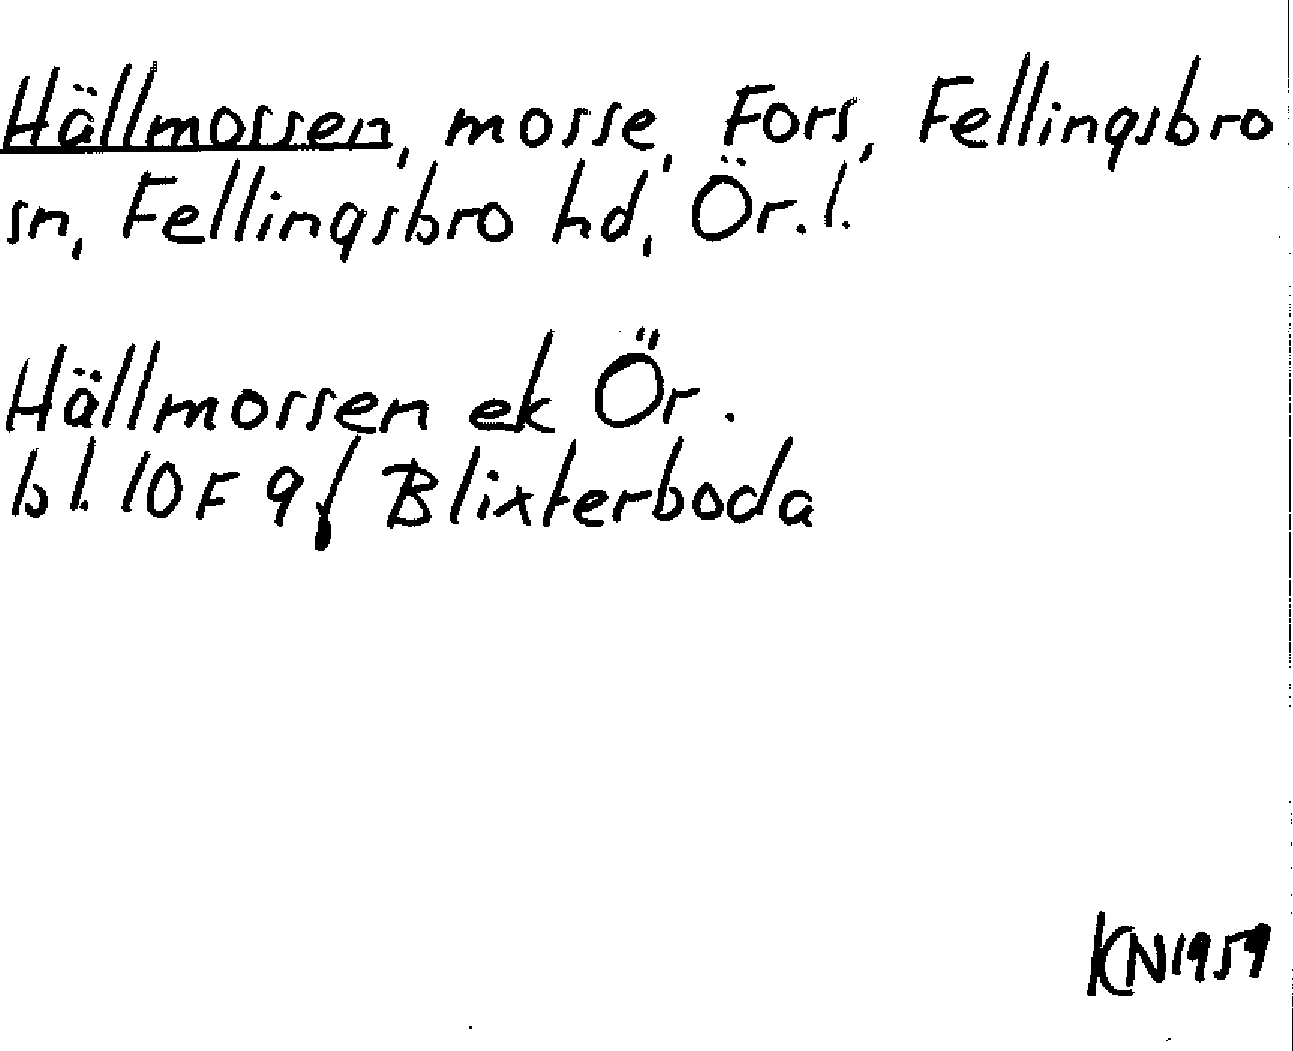 Hällmossen, mosse, Fors, Fellingsbro
sn, Fellingsbro hd, Ör. l.
Hällmossen ek Ör.
bl. 10 F 9 f Blixterboda
KN 1959